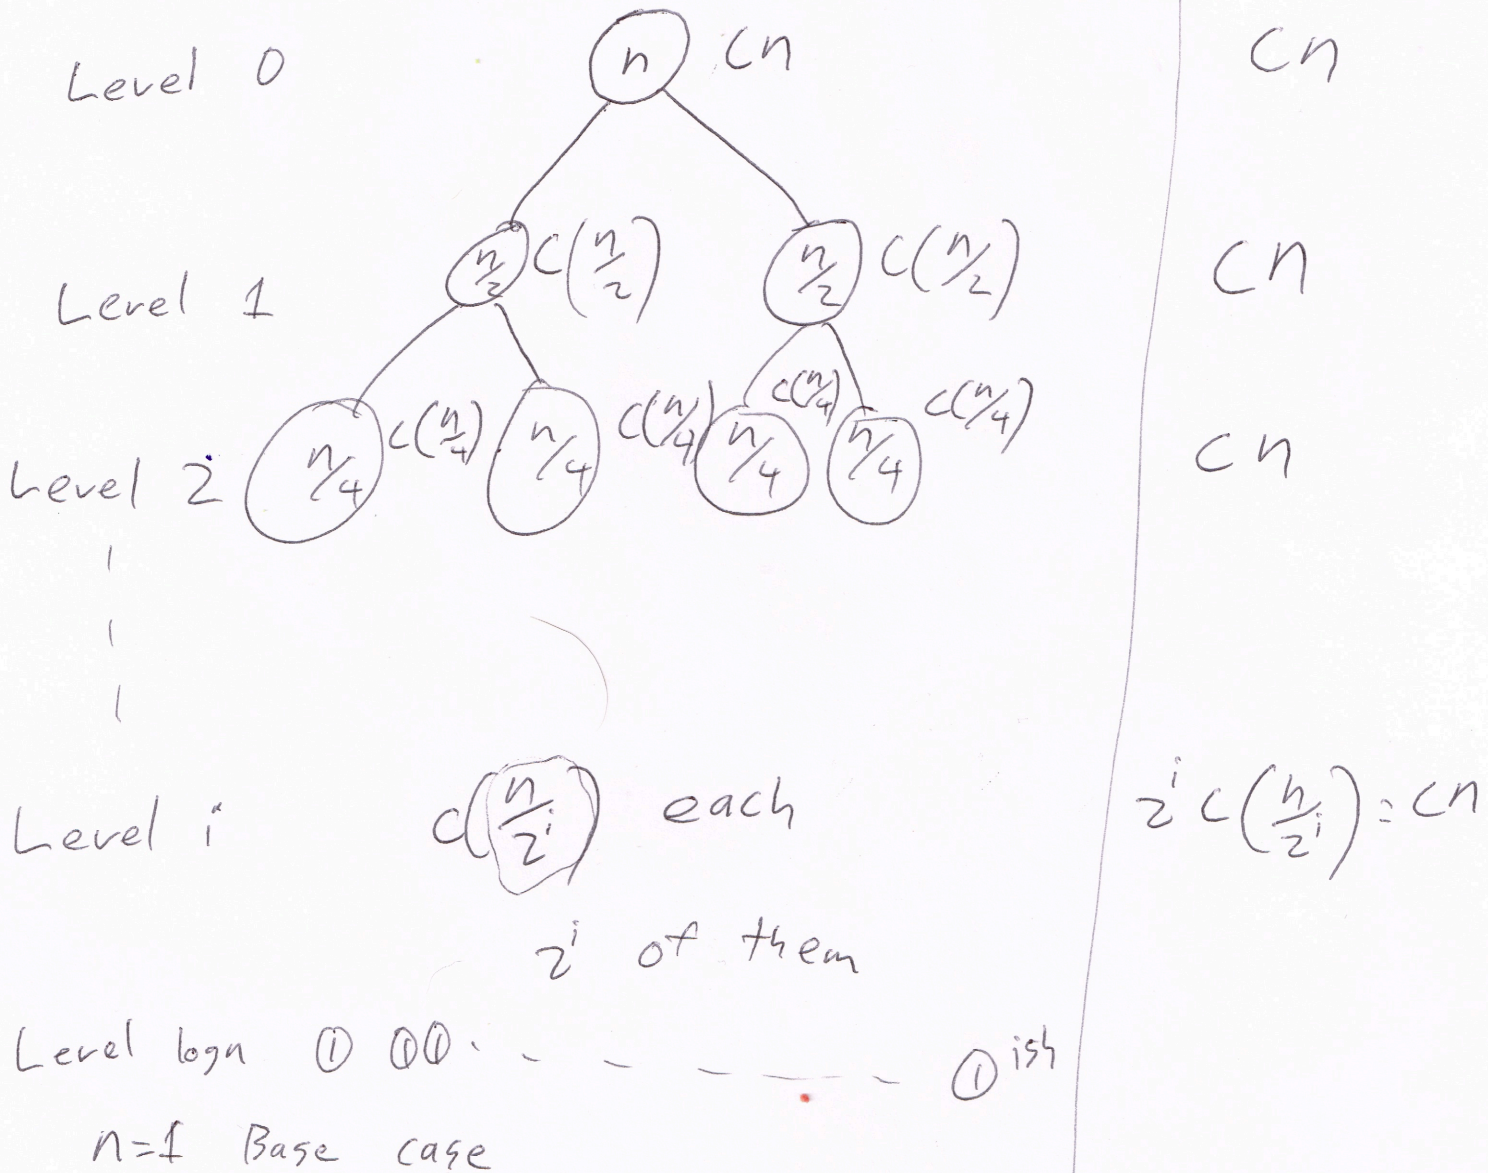 Level 0 n cn cn
Level 1 n/2 c(n/2) n/2 c(n/2) cn
Level 2 n/4 c(n/4) n/4 c(n/4) n/4 c(n/4) n/4 c(n/4) cn
Level i c(n/2^i) each 2^i c(n/2^i) = cn
2^i of them
Level logn 1 1 1 . - - - - - 1 ish
n=1 Base case